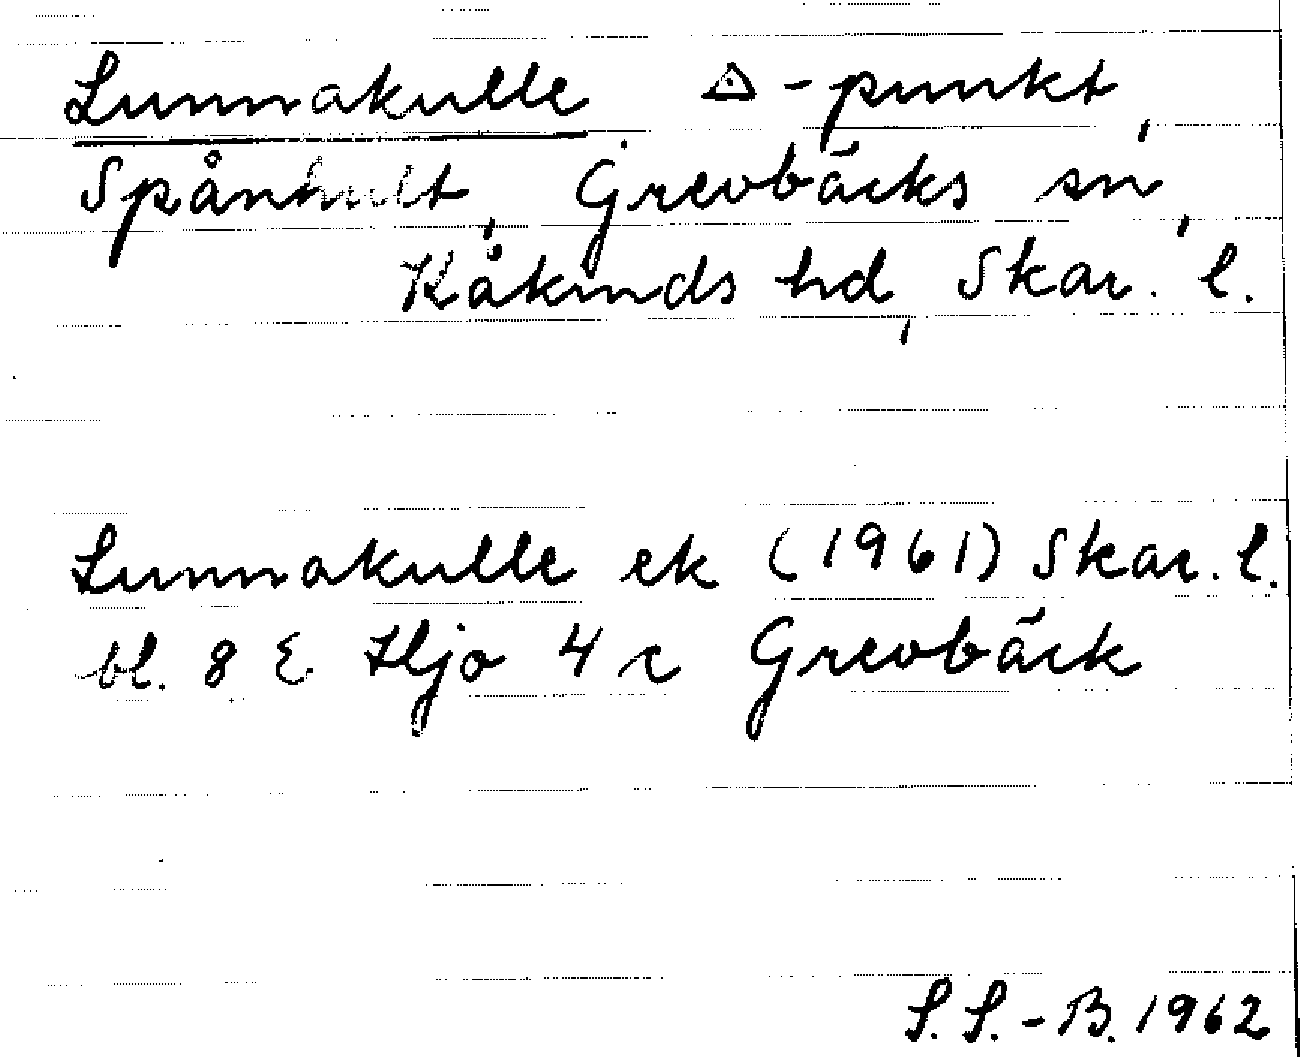 Lunnakulle △-punkt,
Spånhult, Grevbäcks sn,
Kåkinds hd, Skar. l.
Lunnakulle ek (1961) Skar. l.
bl. 8 E Hjo 4 c Grevbäck
S. S.-B. 1962